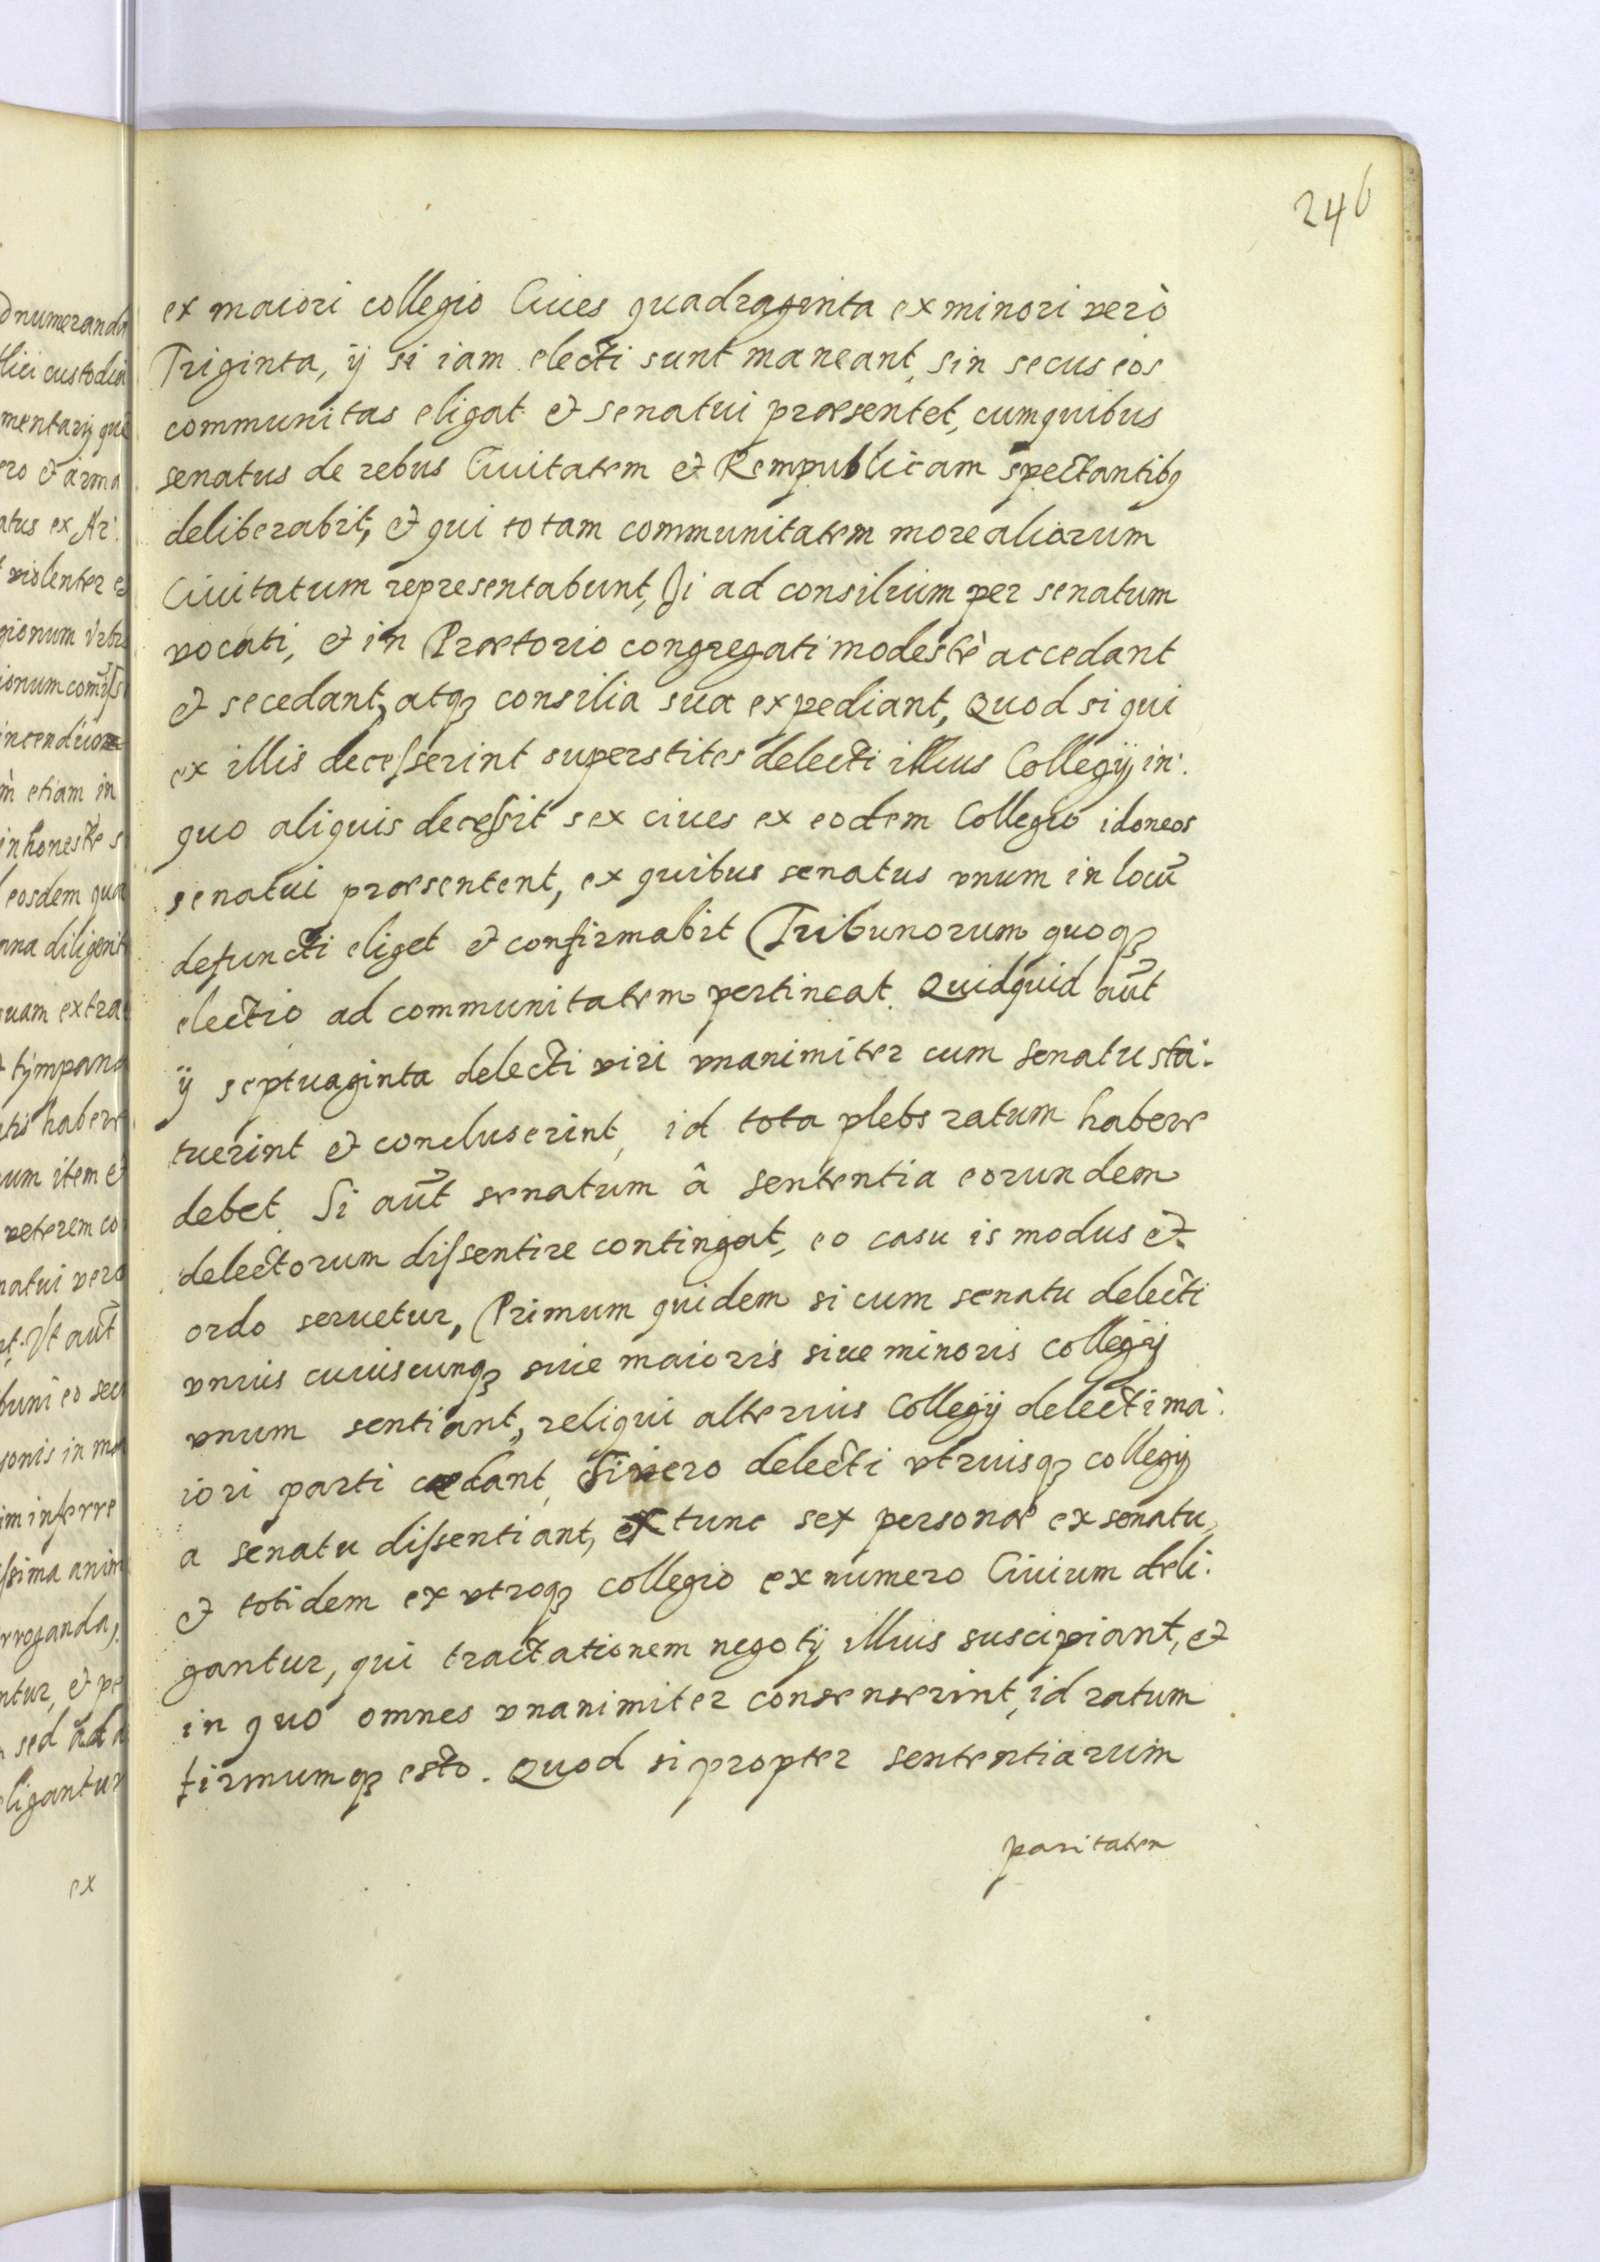 246
ex maiori collegio Ciues quadraginta ex minori verò
Triginta, ij si iam electi sunt maneant, sin secus eos
communitas eligat et senatui præsentet, cum quibus
senatus de rebus Ciuitatem et Rempublicam spectantibq
deliberabit, et qui totam communitatem more aliorum
Ciuitatum representabunt, Ji ad consilium per senatum
vocati, et in Prætorio congregati modestè accedant
et secedant, atq consilia sua expediant, Quod si qui
ex illis decesserint superstites delecti illius Collegij in:
quo aliquis decessit sex ciues ex eodem Collegio idoneos
senatui præsentent, ex quibus senatus vnum in locũ
defuncti eliget et confirmabit Tribunorum quoq
electio ad communitatem pertineat. Quidquid aũt
ij septuaginta delecti viri vnanimiter cum Senatu sta:
tuerint et concluserint, id tota plebs ratum habere
debet. Si aũt senatum â sententia eorundem
delectorum dissentire contingat, eo casu is modus et
ordo seruetur, Primum quidem si cum senatu delecti
vnius cuiuscunq siue maioris siue minoris collegij
vnum sentiant, reliqui alterius Collegij delecti ma:
iori parti cedant, Si vero delecti vtriusq collegij
a senatu dissentiant, ex tunc sex personæ ex senatu,
et totidem ex vtroq collegio ex numero Ciuium deli:
gantur, qui tractationem negotij illius suscipiant, et
in quo omnes vnanimiter consenserint, id ratum
firmumq esto. Quod si propter sententiarum
paritatem
numeranda
custodia
ero et arma
atus ex Ar:
violenter
gionum Vrbis
etiam in
inhoneste s
eosdem qua
extra
tympana
habere
um item et
veterem co
natui vero
Vt aũt
eo sec
in
inferre
ssima anim
rroganda,
ntur, et pe
sed ad
ligantur
ex